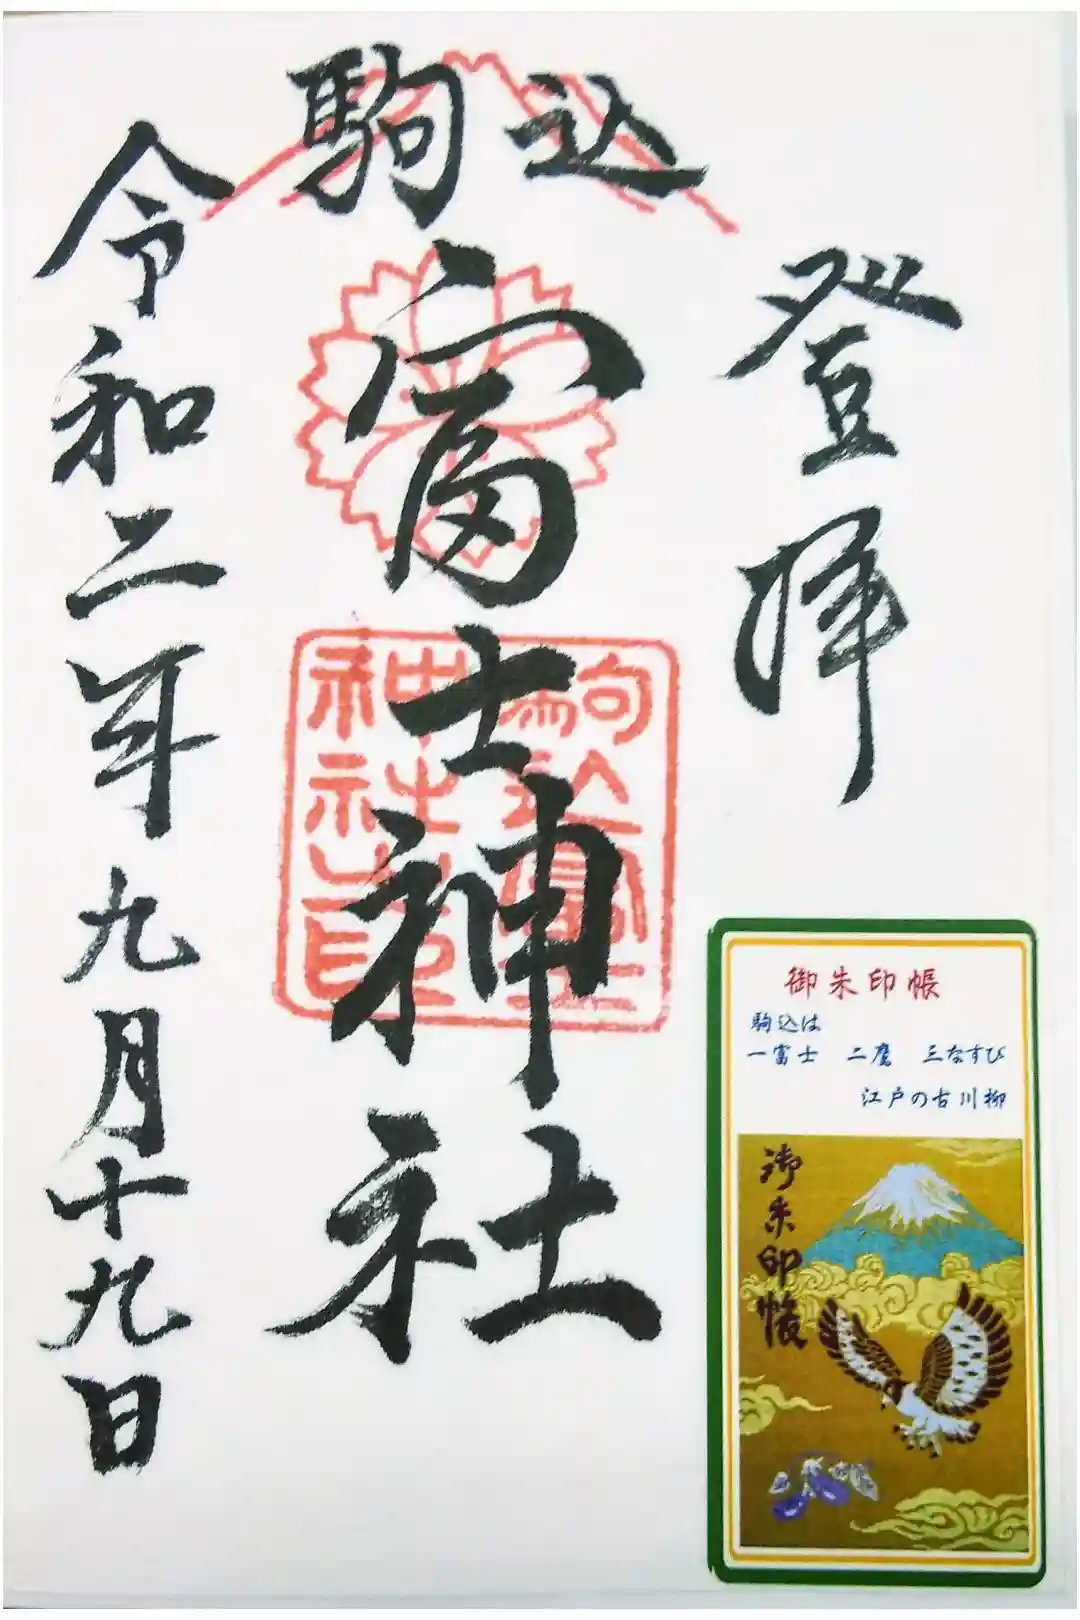 登拝
駒込
富士神社
駒込富士
神社之印
令和二年九月十九日
御朱印帳
駒込は
一富士 二鷹 三なすび
江戸の古川柳
御朱印帳